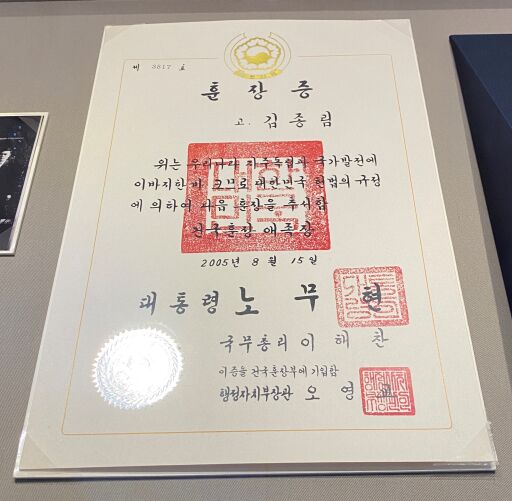 제 3817 호
훈장증
고. 김종림
위는 우리나라 자주독립과 국가발전에
이바지한바 크므로 대한민국 헌법의 규정
에 의하여 다음 훈장을 추서함
건국훈장 애족장
2005년 8월 15일
대통령 노무현
국무총리 이해찬
이증을 건국훈장부에 기입함
행정자치부장관 오영교